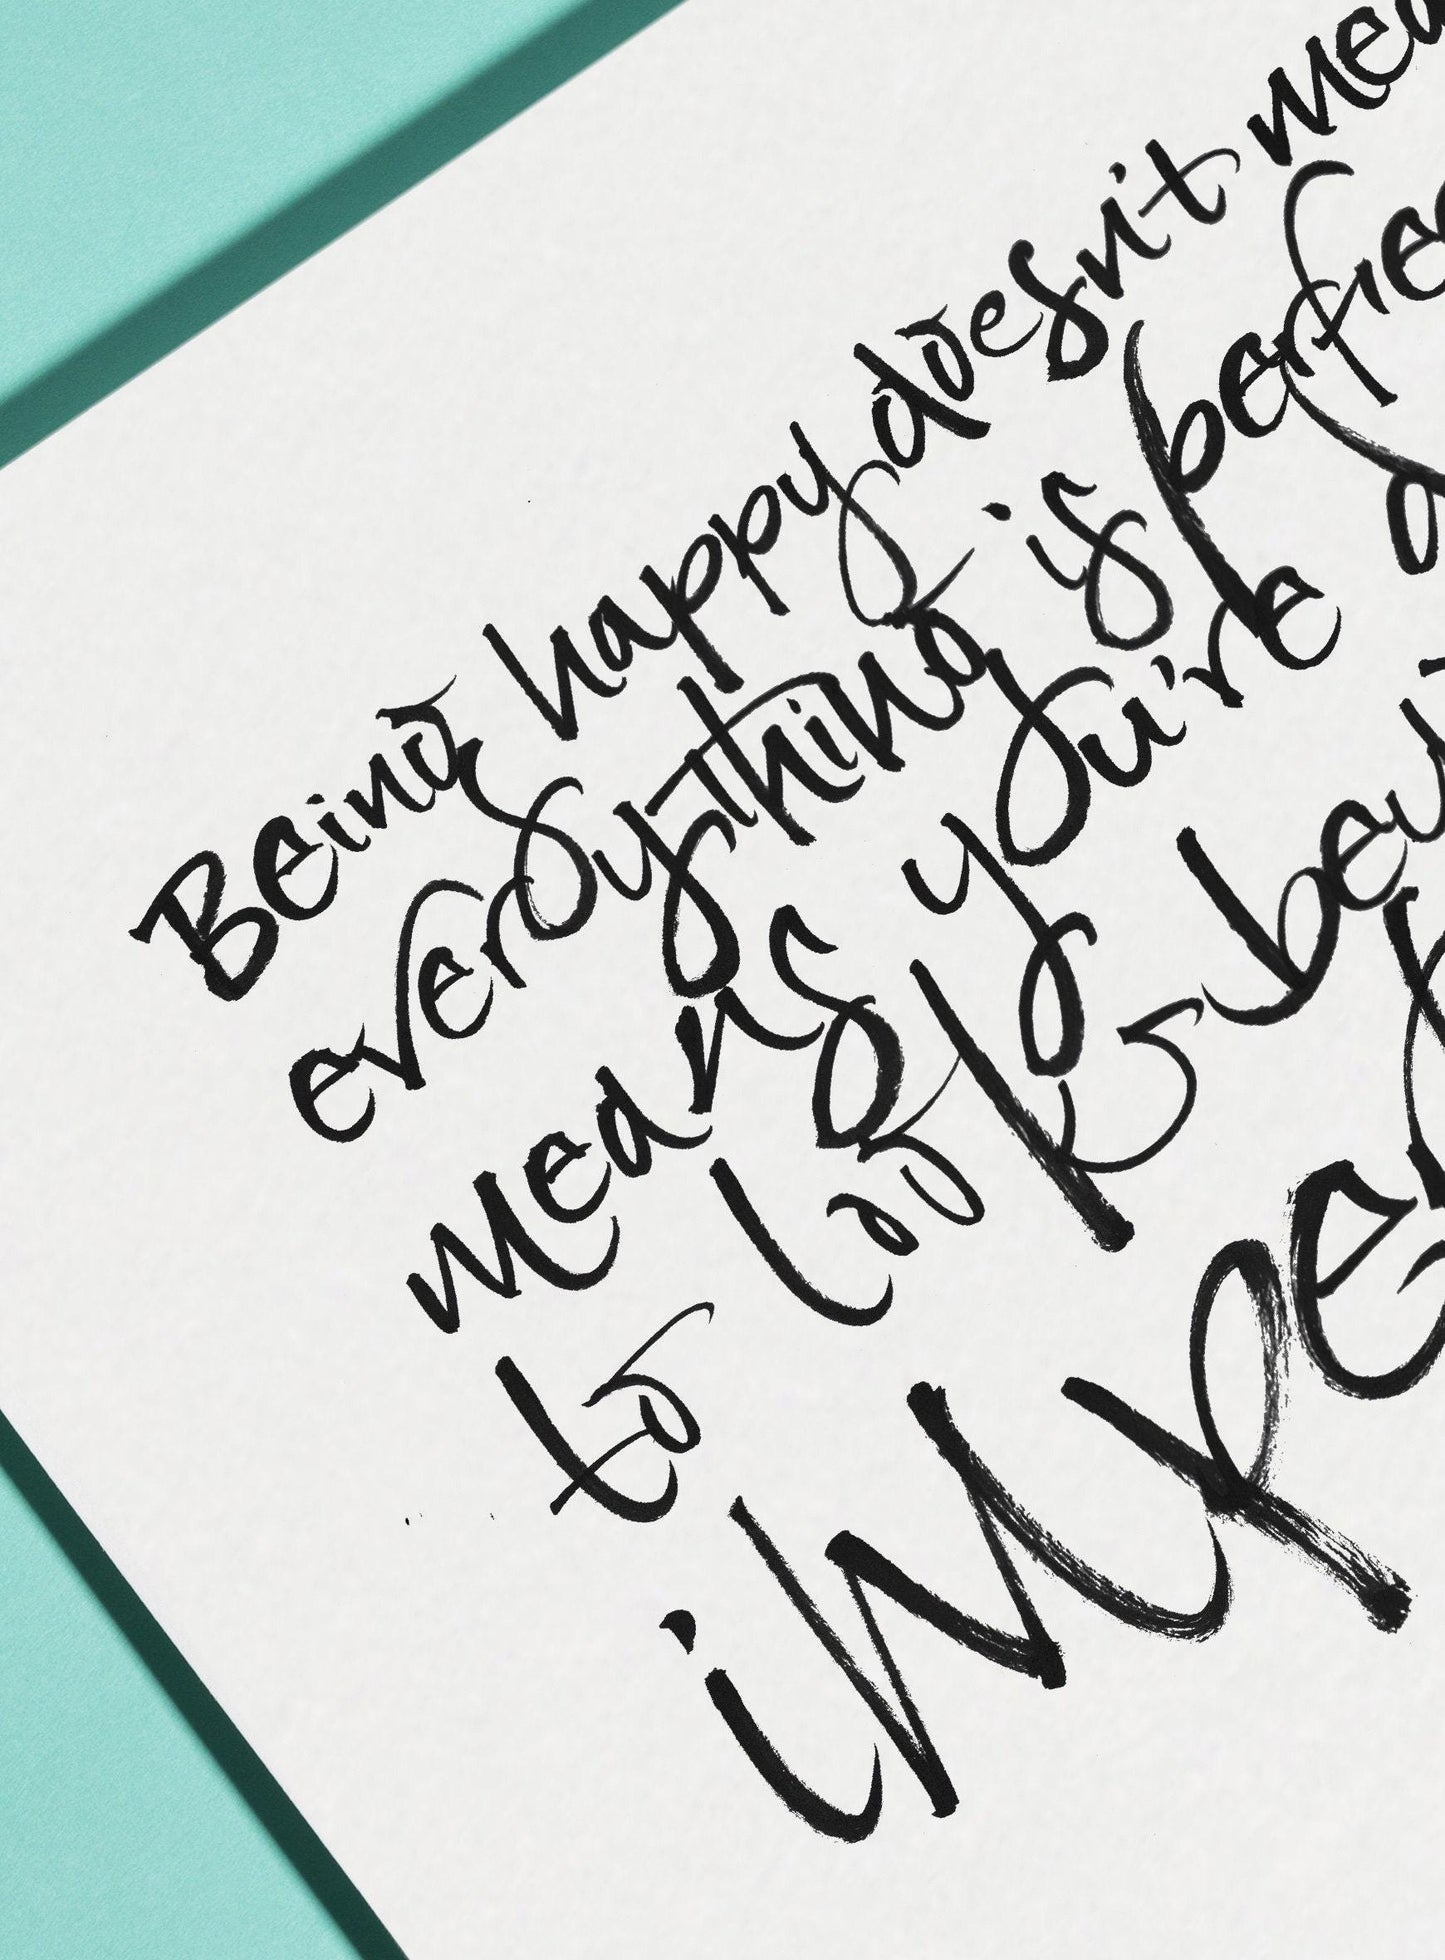 Being happy doesn't mea
everything is perfec
means you're
to look bey
imper